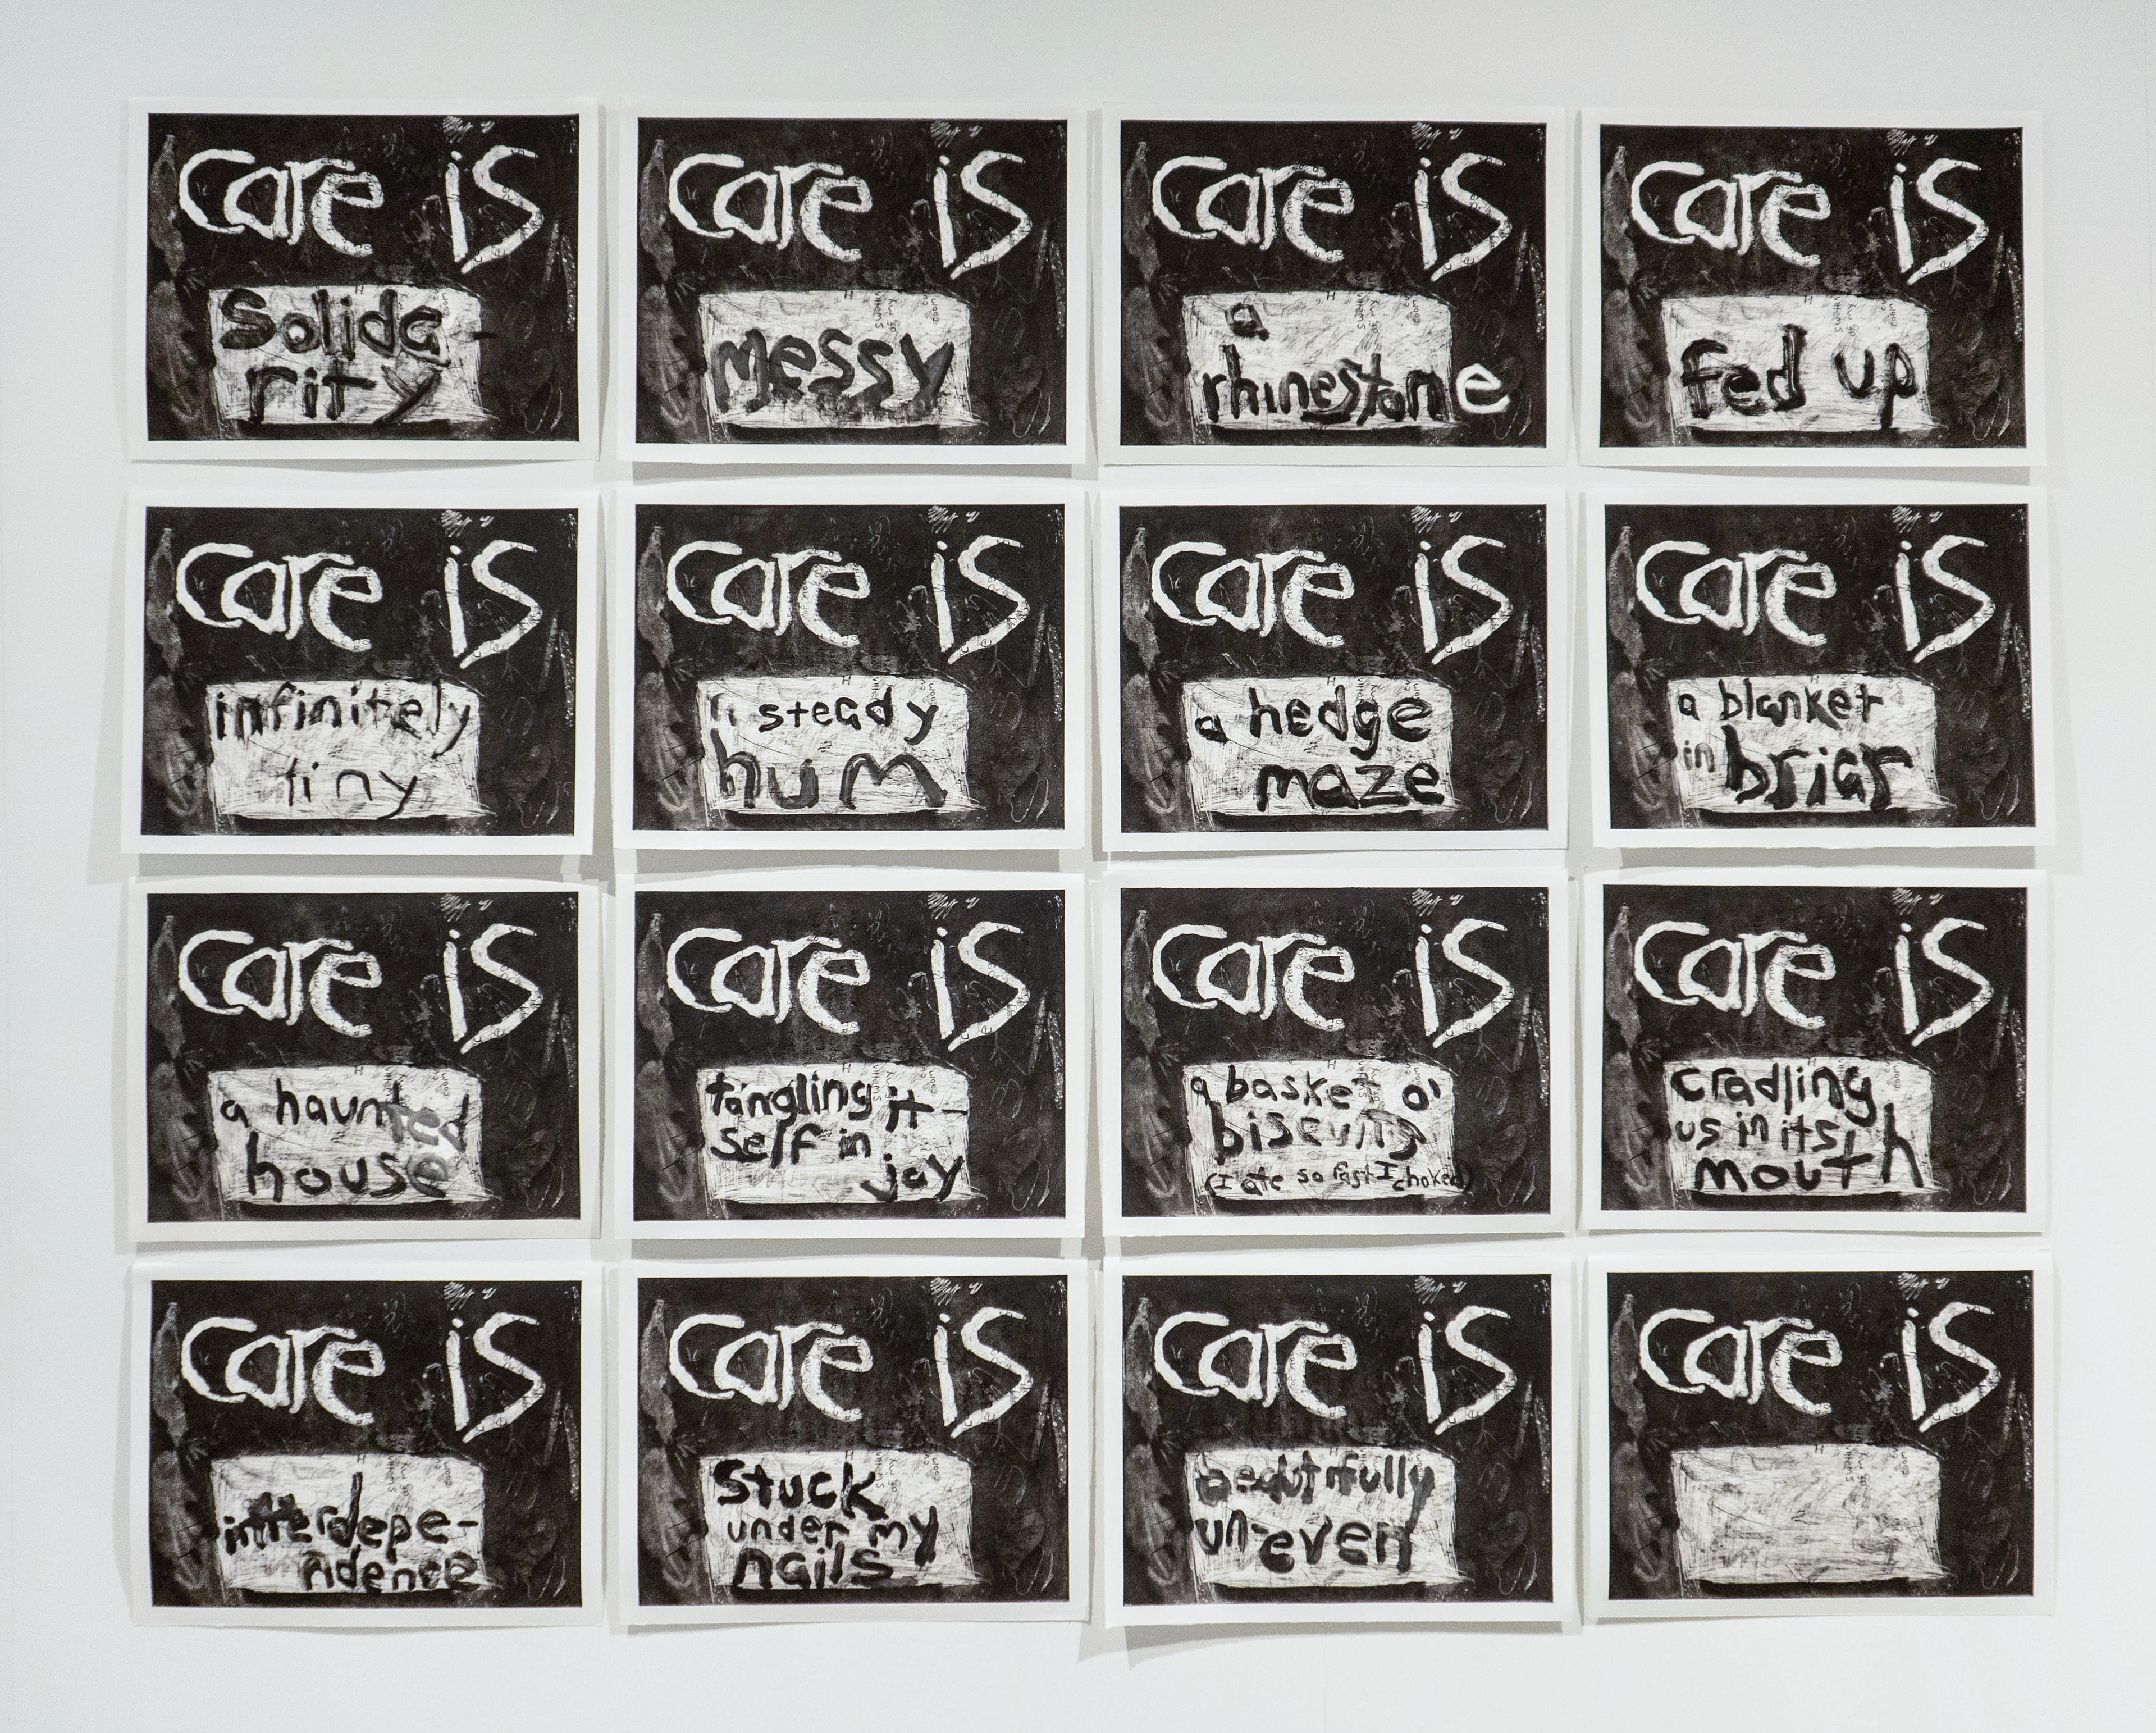 care is
solida-
rity
care is
messy
care is
a
rhinestone
care is
fed up
care is
infinitely
tiny
care is
a steady
hum
care is
a hedge
maze
care is
a blanket
in briar
care is
a haunted
house
care is
tangling it-
self in
joy
care is
a basket o'
biscuits
(I ate so fast I choked)
care is
cradling
us in its
mouth
care is
interdepe-
ndence
care is
stuck
under my
nails
care is
beautifully
un-even
care is